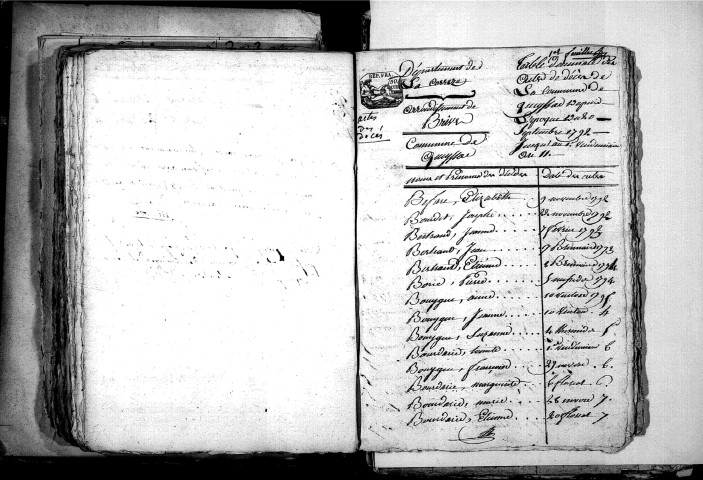 1er feuillet
Département de
La Correze
arrondissement de
Brive
Commune de
Queyssac
REP. FRA.
actes
des
décés
Table décennale des
Actes de décès de
La commune de
queyssac Depuis
L'époque Du 20
Septembre 1792
Jusqu'au 1er Vendemiaire
An 11.
noms et Prénoms des décédés Date des actes
Elizabeth 9 novembre 1792
Bourdet, Josephe 22 novembre 1792
Bertrand, Jeanne 1 fevrier 1793
Bertrand, Jean 9 Brumaire 1793
Bertrand, Etienne 2 Brumaire 1794
Borie, Pierre 1794
Bouygue, anne 10 ventose 1795
Bouygue, Jeanne 10 ventose 4
Bouygue, Suzanne 4 thermidor 5
Bourdarie, 1er vendemiaire 6
Bouygue, francois 29 nivose 6.
Bourdarie, marguerite 6 floreal 6
Bourdarie, marie 28 nivose 7.
Bourdarie, Etienne 20 floreal 7